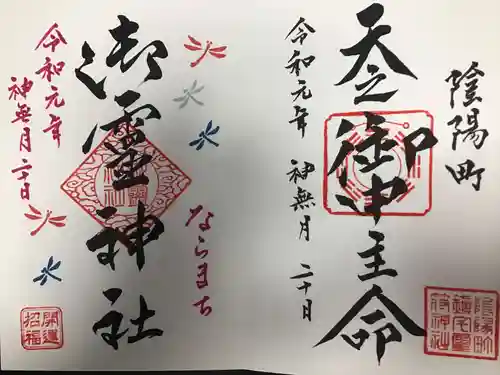 陰陽町
天之御中主命
令和元年 神無月 二十日
ならまち
御霊神社
令和元年
神無月 二十日
開運
招福